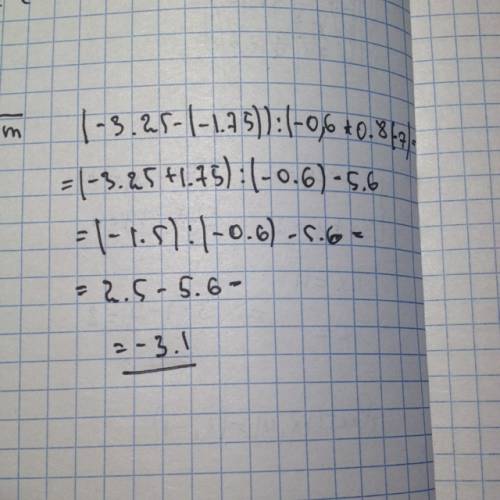 m (-3.25-(-1.75)):(-0,6+0.8(-7)=
=(-3.25+1.75):(-0.6)-5.6
=(-1.5):(-0.6)-5.6=
=2.5-5.6=
=-3.1